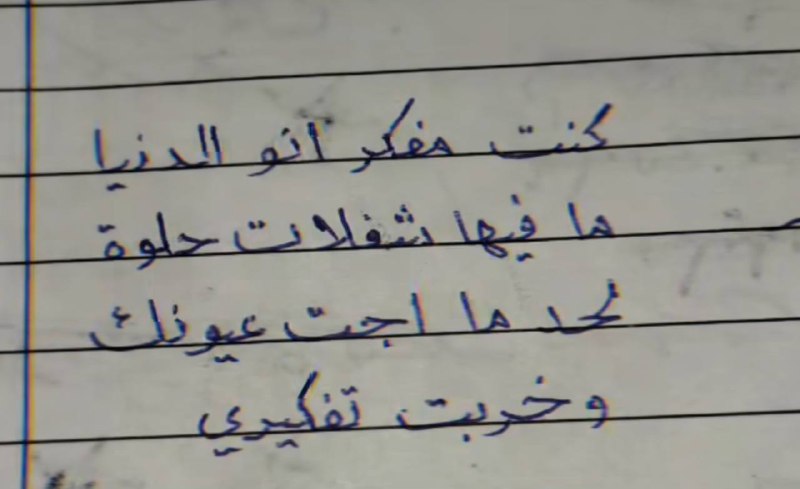 كنت مفكر انو الدنيا
ما فيها شغلات حلوة
لحد ما اجت عيونك
وخربت تفكيري